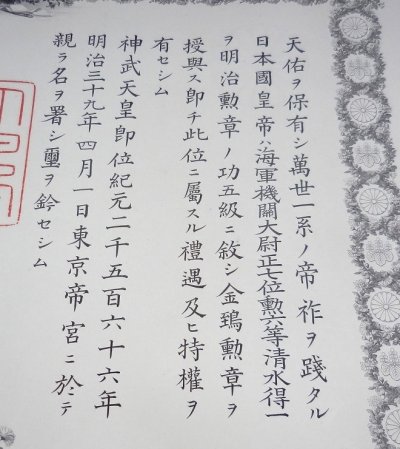 天佑ヲ保有シ萬世一系ノ帝祚ヲ踐タル
日本國皇帝ハ海軍機關大尉正七位勲六等清水得一
ヲ明治勲章ノ功五級ニ敘シ金鵄勲章ヲ
授與ス即チ此位ニ屬スル禮遇及ヒ特權ヲ
有セシム
神武天皇即位紀元二千五百六十六年
明治三十九年四月一日東京帝宮ニ於テ
親ラ名ヲ署シ璽ヲ鈐セシム